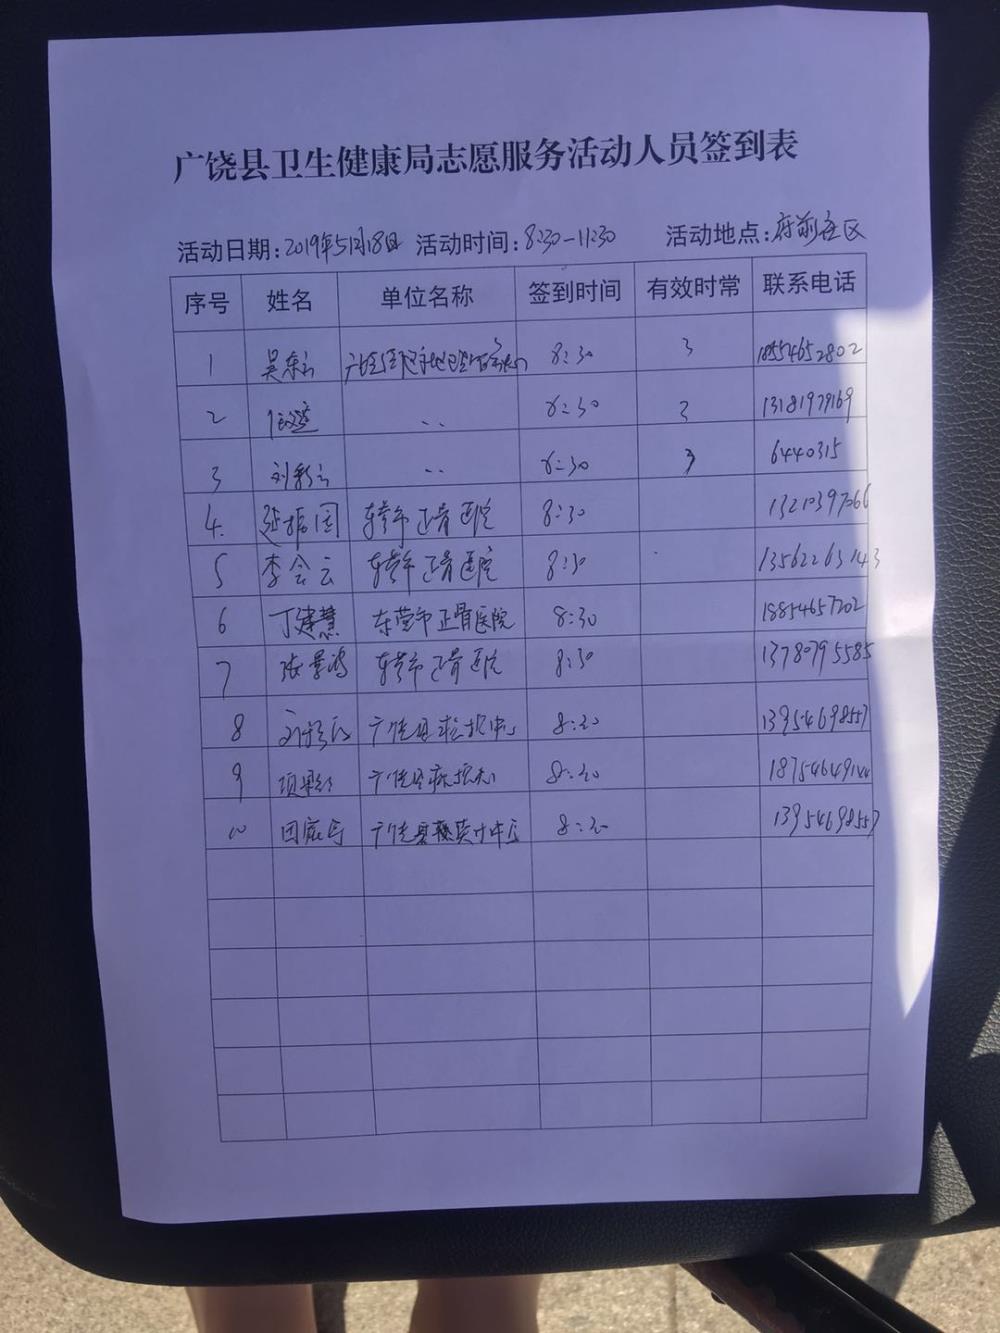 广饶县卫生健康局志愿服务活动人员签到表
活动日期:2019年5月18日 活动时间:8:30-11:30 活动地点:府前社区
序号 姓名 单位名称 签到时间 有效时常 联系电话
1 吴东云 8:30 3 18554652802
2 8:30 3 13181979169
3 刘彩云 8:30 3 6440315
4. 延振国 东营市正骨医院 8:30 13210397066
5 李会云 东营市正骨医院 8:30 13562263143
6 丁建慧 东营市正骨医院 8:30 18854657202
7 张景鸿 东营市正骨医院 8:30 13780795585
8 广饶县疾控中心 8:30 13954698557
9 广饶县疾控中心 8:30
10 广饶县 8:30 13954698557